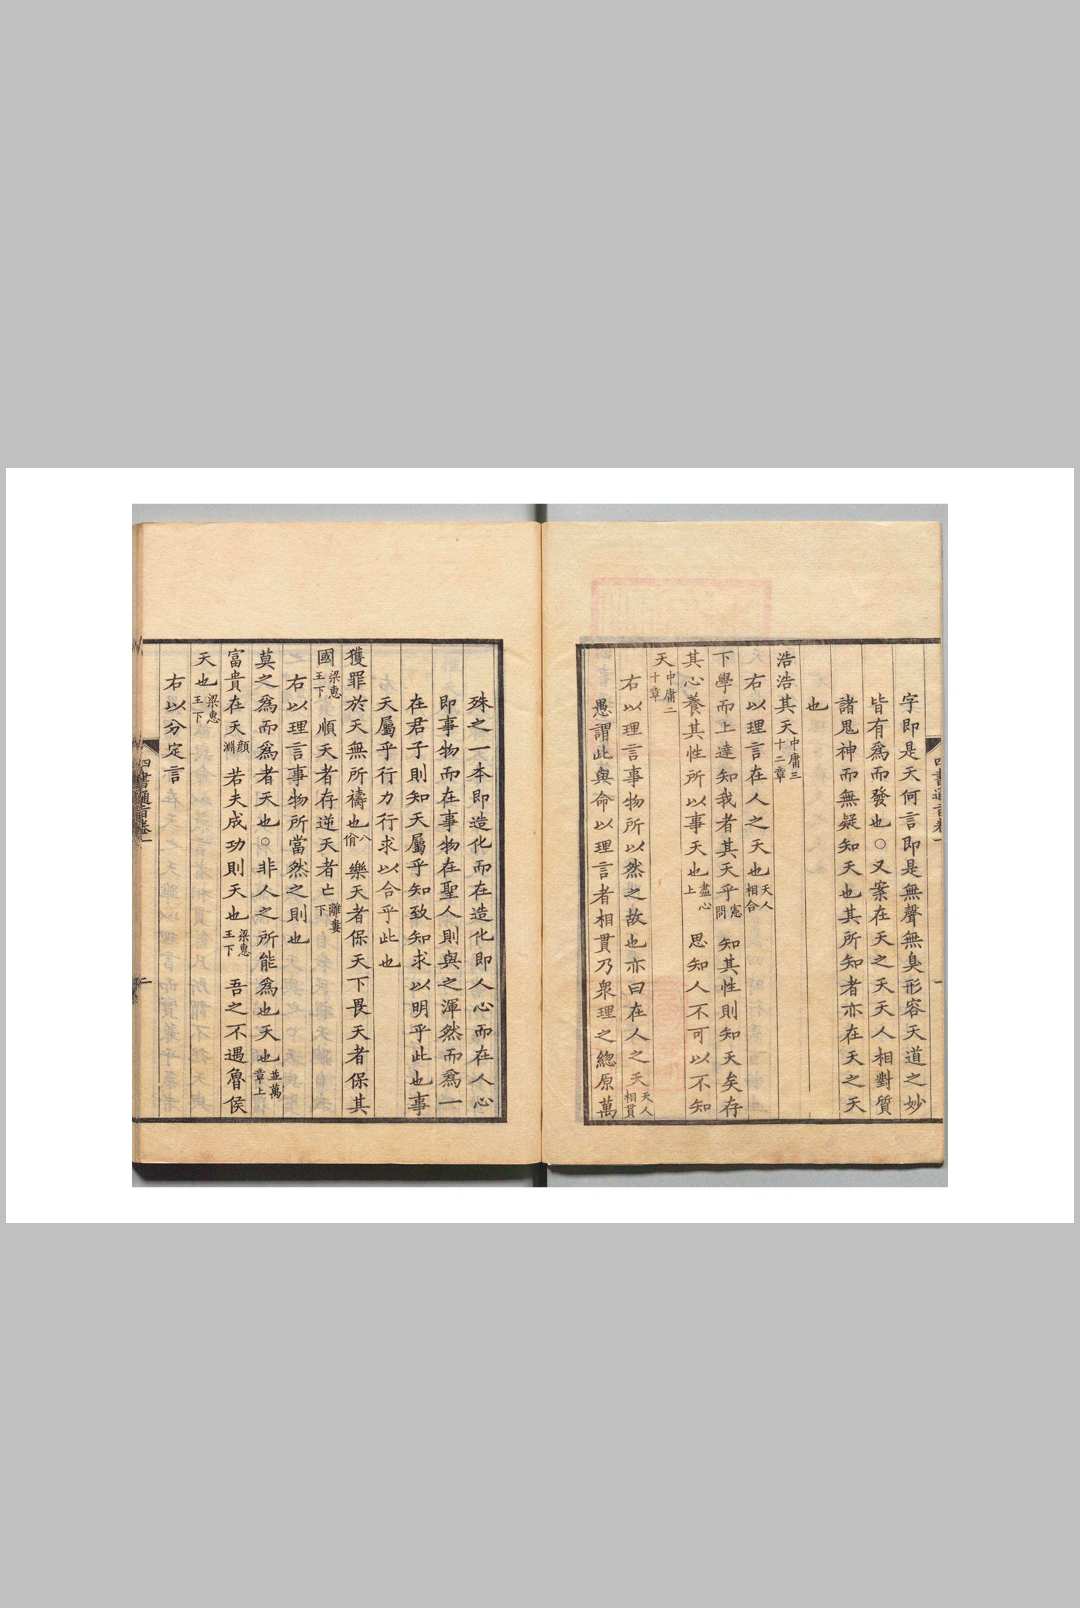 字即是天何言即是無聲無臭形容天道之妙
皆有爲而發也○又案在天之天天人相對質
諸鬼神而無疑知天也其所知者亦在天之天
也
浩浩其天中庸三十二章
右以理言在人之天也天人相合
下學而上達知我者其天乎憲問 知其性則知天矣存
其心養其性所以事天也盡心上 思知人不可以不知
天中庸二十章
右以理言事物所以然之故也亦曰在人之天天人相貫
愚謂此與命以理言者相貫乃衆理之總原萬
殊之一本即造化而在造化即人心而在人心
即事物而在事物在聖人則與之渾然而爲一
在君子則知天屬乎知致知求以明乎此也事
天屬乎行力行求以合乎此也
獲罪於天無所禱也八佾 樂天者保天下畏天者保其
國梁惠王下 順天者存逆天者亡離婁下
右以理言事物所當然之則也
莫之爲而爲者天也○非人之所能爲也天也並萬章上
富貴在天顏淵 若夫成功則天也梁惠王下 吾之不遇魯侯
天也梁惠王下
右以分定言
四書通旨卷一